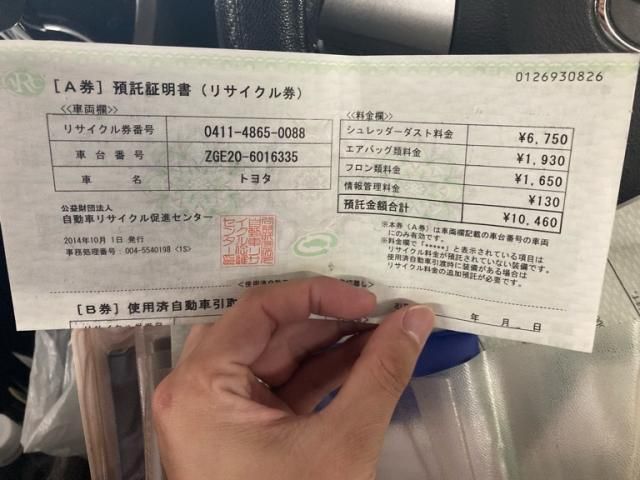 R
0126930826
[A券] 預託証明書 (リサイクル券)
<<車両欄>>
リサイクル券番号 0411-4865-0088
車台番号 ZGE20-6016335
車名 トヨタ
<<料金欄>>
シュレッダーダスト料金 ¥6,750
エアバッグ類料金 ¥1,930
フロン類料金 ¥1,650
情報管理料金 ¥130
預託金額合計 ¥10,460
公益財団法人
自動車リサイクル促進センター
2014年10月 1日 発行
事務処理番号 : 004-5540198 <1S>
※本券(A券)は車両欄記載の車台番号の車両
にのみ有効です。
※料金欄で「*****」と表示されている項目は
リサイクル料金が預託されていない装備です。
使用済自動車引渡時に装備がある場合は
リサイクル料金の追加預託が必要です。
[B券] 使用済自動車引取
年 月 日
リサイクル券番号